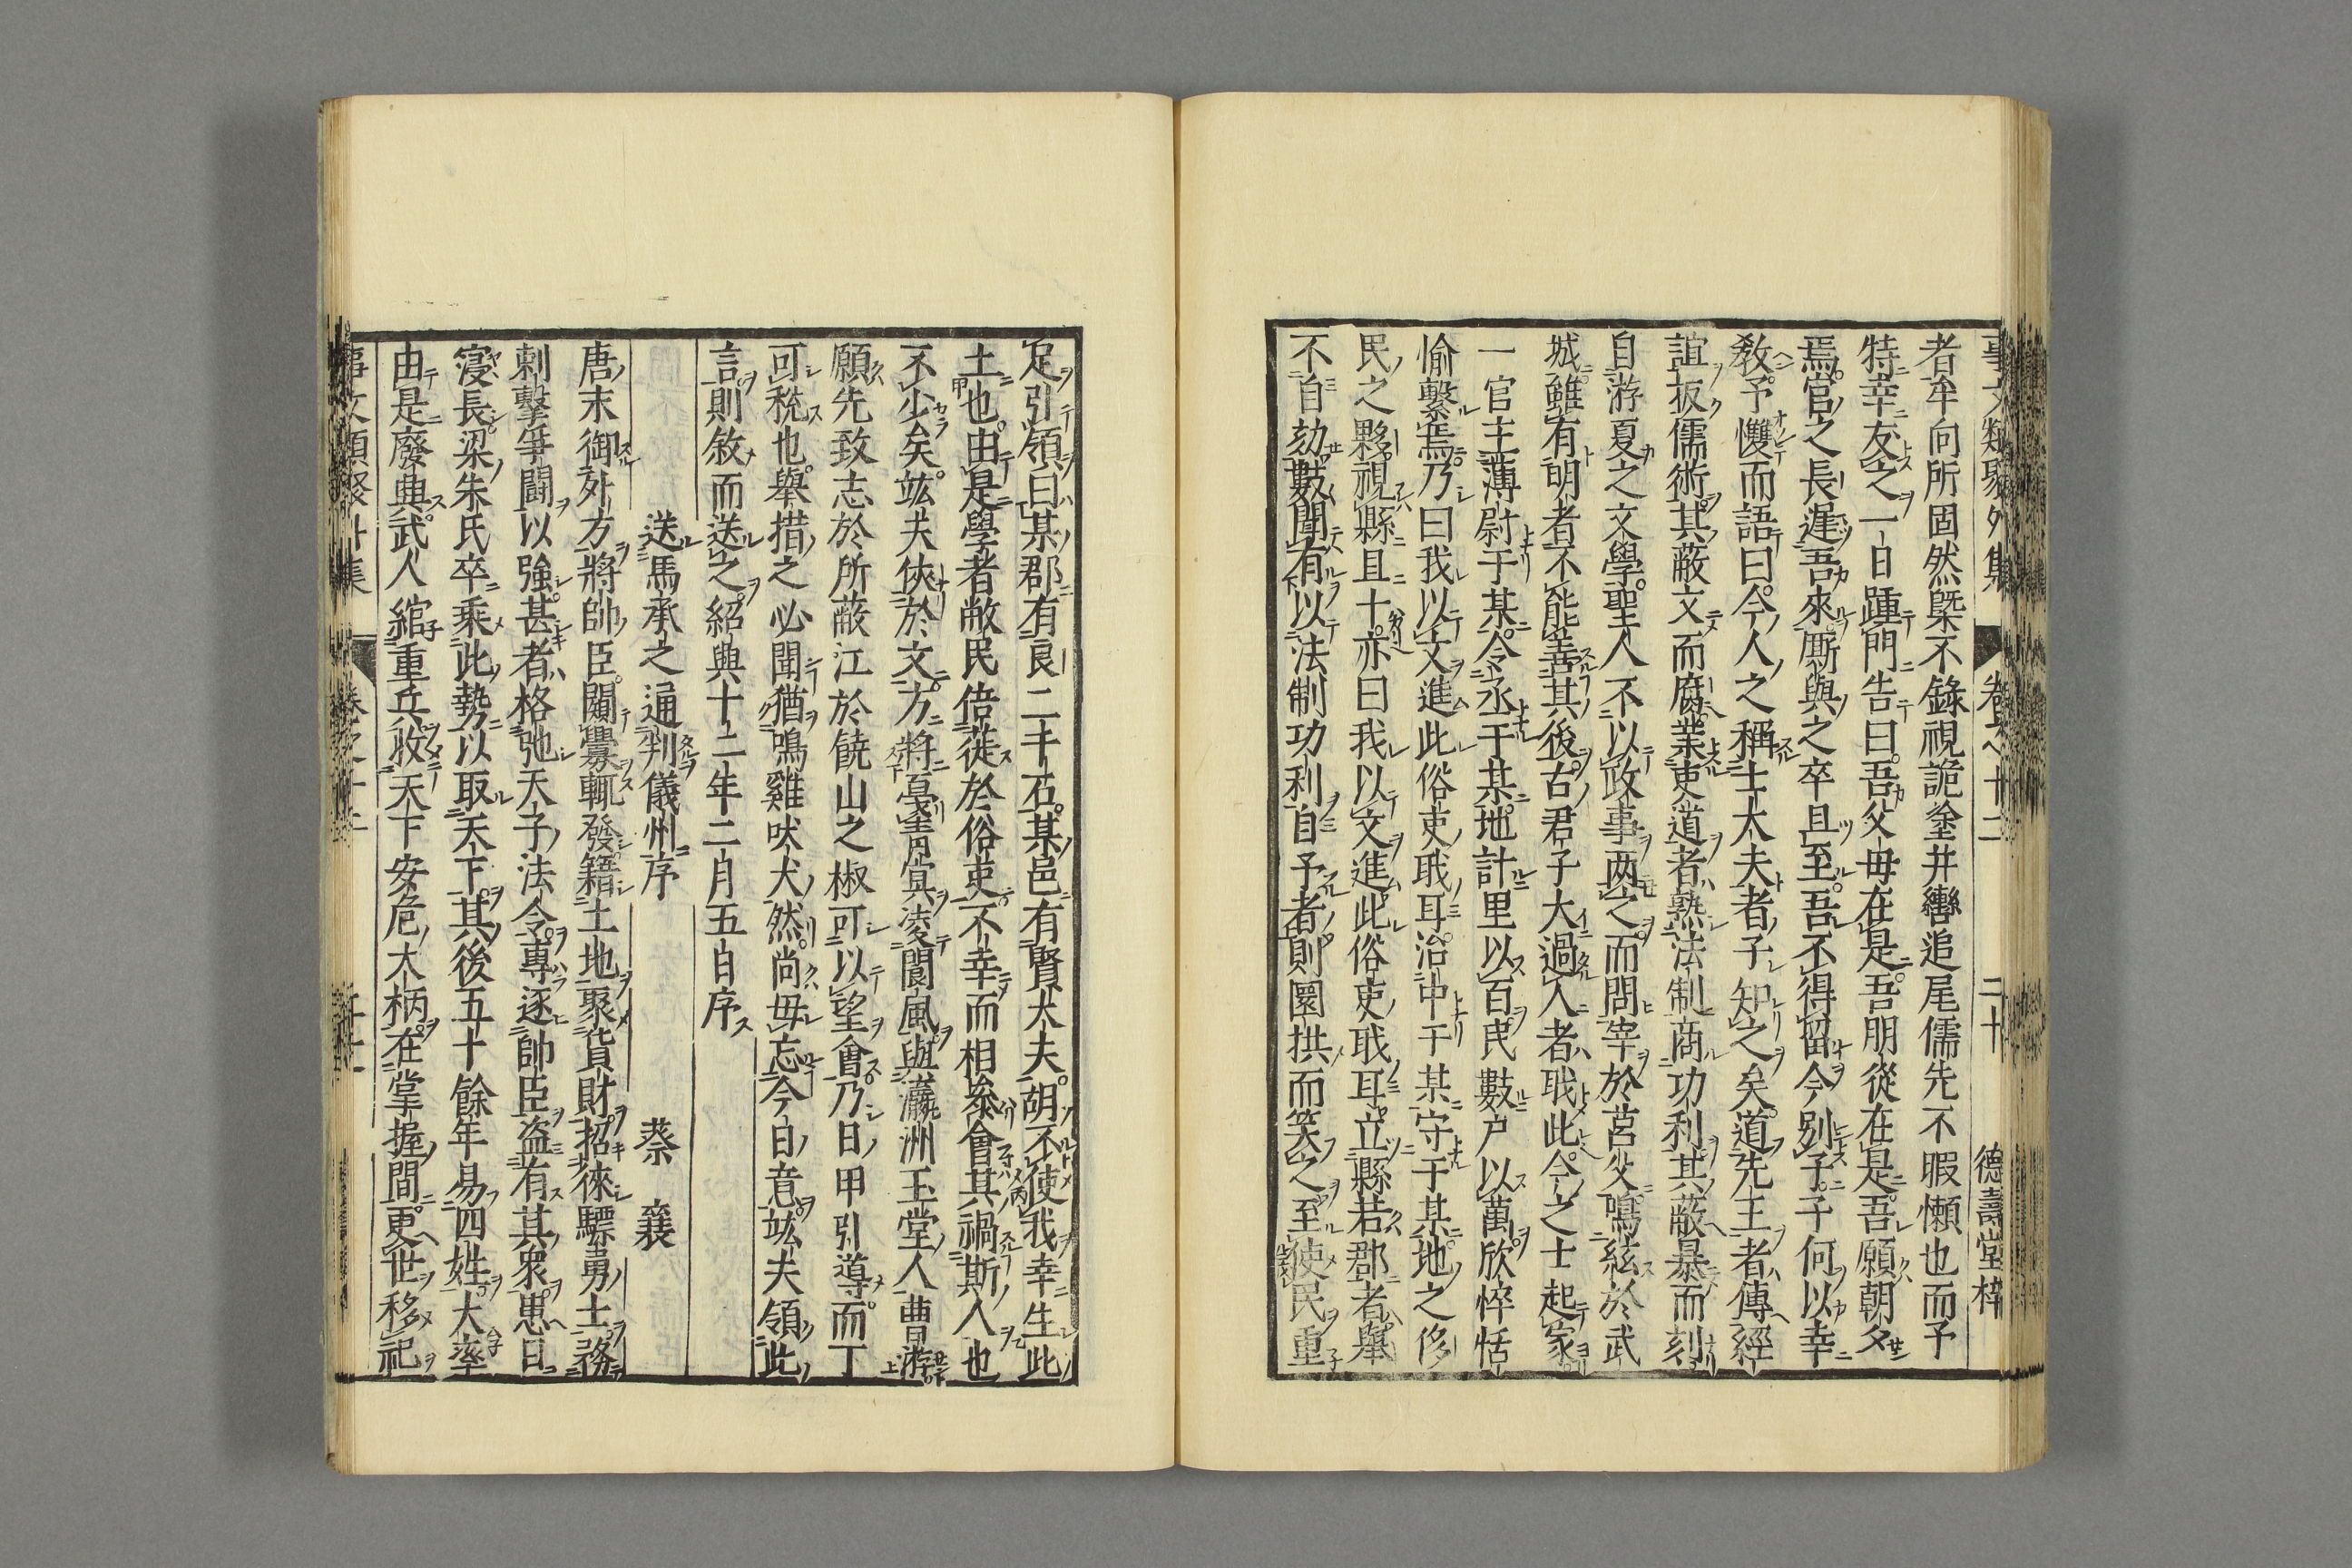 事文類聚外集 卷之十二 二十 德壽堂梓
者牟向所固然槩不錄視詭塗井轡追尾儒先不暇懶也而予
特幸友之一日踵門告曰吾父母在是吾朋從在是吾願朝夕
焉官之長遅吾來厮與之卒且至吾不得留今別子子何以幸
教予戄而語曰今人之稱士大夫者子知之矣道先王者傳經
誼扳儒術其蔽文而腐業吏道者熟法制商功利其蔽暴而刻
自游夏之文學聖人不以政事兩之而問宰於莒父鳴絃於武
城雖有明者不能善其後古君子大過人者耶此今之士起家
一官主薄尉于某令丞于某地計里以百民數户以萬欣悴恬
愉繫焉乃曰我以文進此俗吏耶耳治中于某守于某地之侈
民之夥視縣且十亦曰我以文進此俗吏耶耳立縣若郡者舉
不自劾數聞有以法制功利自予者則圜拱而笑之至使民重
足引領曰某郡有良二千石某邑有賢大夫胡不使我幸生此
土也由是學者敝民倍蓰於俗吏不幸而相叅會其禍斯人也
不少矣竑夫俠於文方將戞青冥凌閬風與瀛洲玉堂人曹游
願先致志於所蔽江於饒山之椒可以望會乃日甲引導而丁
可税也舉措之必聞猶鳴雞吠犬然尚毋忘今日意竑夫領此
言則敘而送之紹興十二年二月五日序
送馬承之通判儀州序 蔡襄
唐末御外方將帥臣闕釁輒發籍土地聚貨財招徠驃勇士務
刺擊爭鬪以強甚者格弛天子法令專逐帥臣盜有其衆患日
寖長梁朱氏卒乘此勢以取天下其後五十餘年易四姓大率
由是廢典武人綰重兵收天下安危大柄在掌握間更世移祀
事文類聚外集 卷之十二